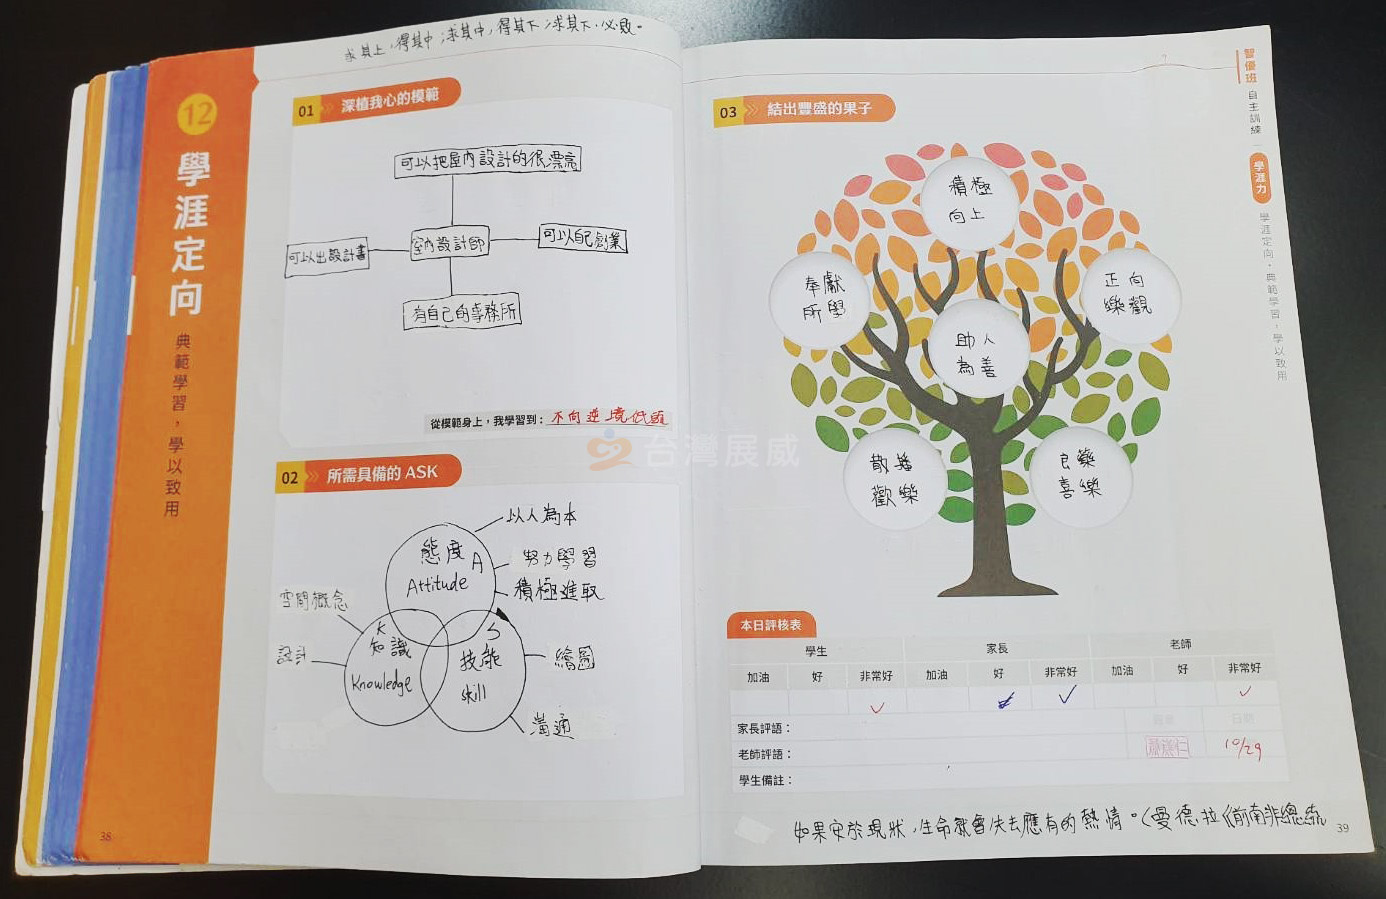 求其上，得其中；求其中，得其下；求其下，必敗。
12
學涯定向
典範學習，學以致用
01 深植我心的模範
可以把屋內設計的很漂亮
可以出設計書
室內設計師
可以自己創業
有自己的事務所
從模範身上，我學習到：不向逆境低頭
02 所需具備的 ASK
以人為本
態度 A
Attitude
努力學習
積極進取
空間概念
設計
K
知識
Knowledge
S
技能
skill
繪圖
溝通
38
台灣展威
03 結出豐盛的果子
積極
向上
奉獻
所學
正向
樂觀
助人
為善
散播
歡樂
良樂
喜樂
本日評核表
學生 家長 老師
加油 好 非常好 加油 好 非常好 加油 好 非常好
家長評語：
老師評語：
10/29
學生備註：
如果安於現狀，生命就會失去應有的熱情。(曼德拉《前南非總統
39
智優班
自主訓練
學涯力
學涯定向，典範學習，學以致用